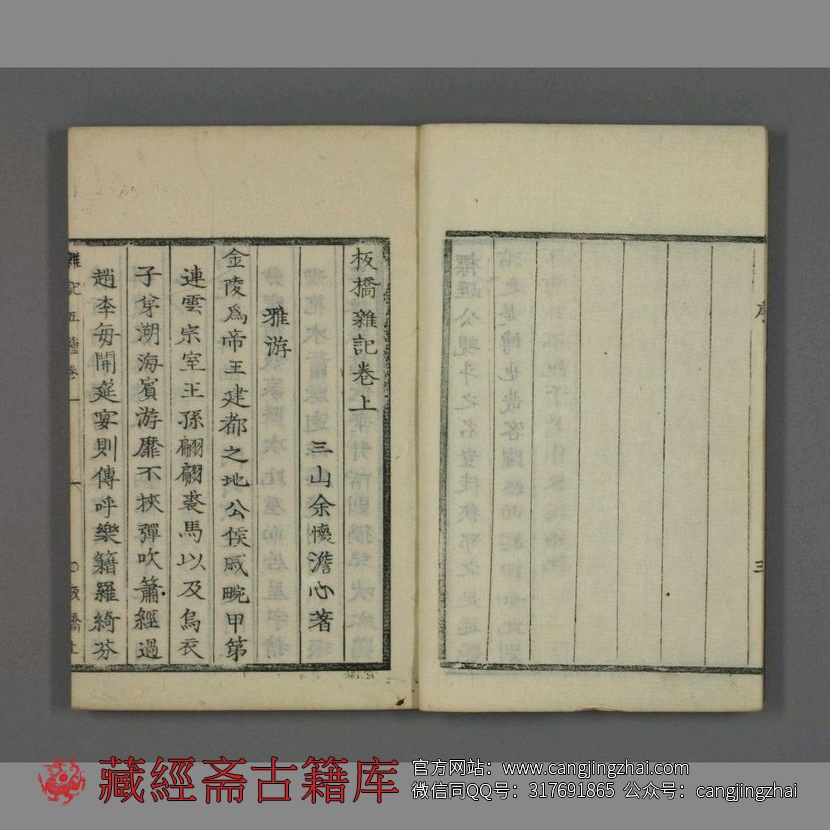 序
三
板橋雜記卷上
三山余懷澹心著
雅游
金陵爲帝王建都之地公侯戚畹甲第
連雲宗室王孫翩翩裘馬以及烏衣
子弟湖海賓游靡不挾彈吹簫經過
趙李每開筵宴則傳呼樂籍羅綺芬
藏經斋古籍库
官方网站：www.cangjingzhai.com
微信同QQ号：317691865 公众号：cangjingzhai